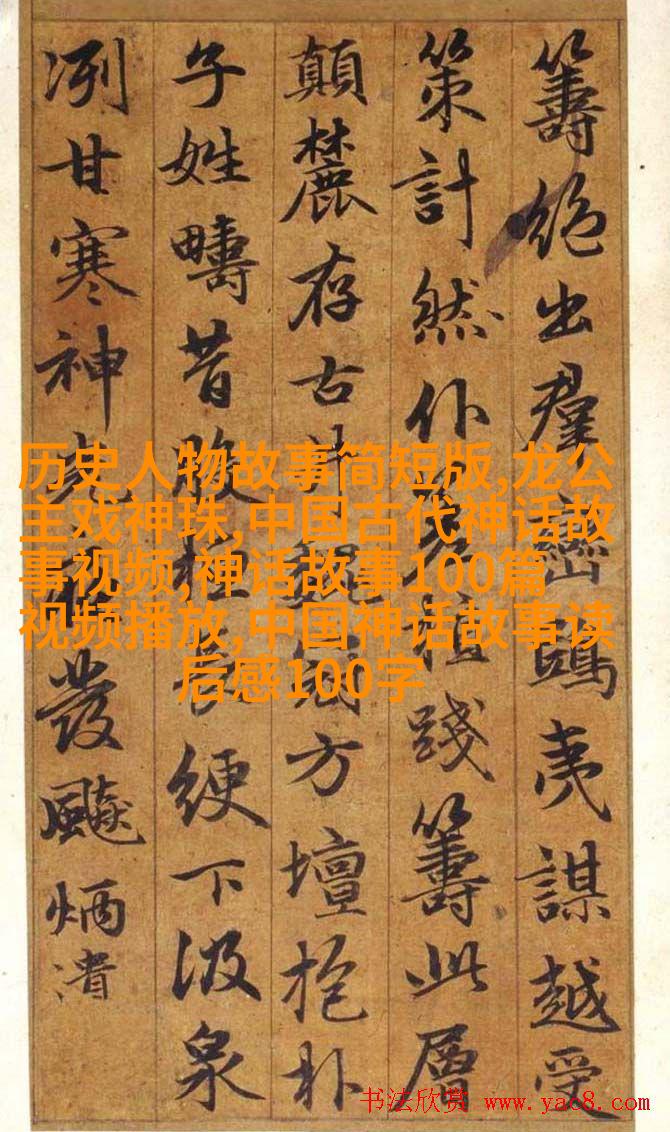 历史人物故事简短版,龙公
主戏神珠,中国古代神话故
事视频,神话故事100篇
视频播放,中国神话故事读
后感100字
籌絶出羣夷謀越受
策計然仆踐籌此層
顛麓存古方壇抱朴
子姓疇昔綆下汲泉
冽甘寒神發飈炳潰
书法欣赏 www.yac8.com